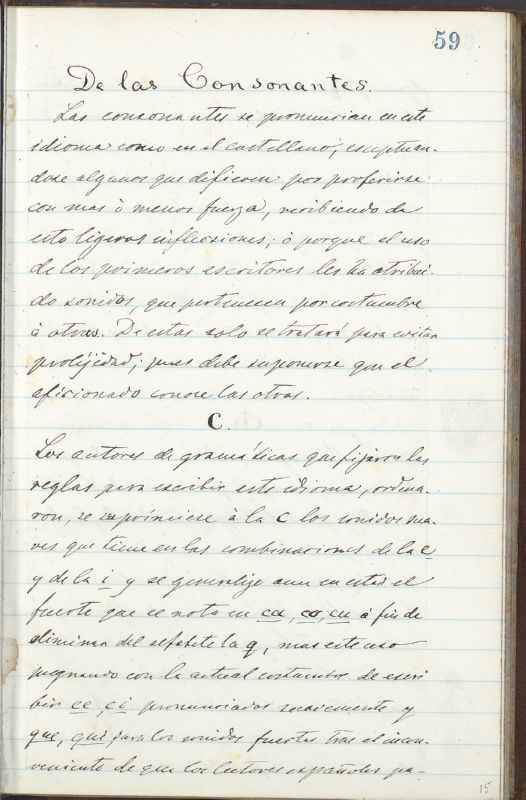 59
De las Consonantes.
Las consonantes se pronuncian en este
idioma como en el castellano, esceptuan-
dose algunos que dificren por proferirse
con mas ò menos fuerza, recibiendo de
esto ligeras inflecsiones; ò porque el uso
de los primeros escritores les ha atribui-
do sonidos, que pertenecen por costumbre
à otras. De estas solo se tratará para evitar
prolijédad; pues debe suponerse que el
aficionado conose las otras.
C.
Los autores de gramáticas que fijaron las
reglas para escribir este idioma, ordena-
ron, se suprimiese à la C los sonidos sua-
ves que tiene en las combinaciones de la e
y de la i y se generalize aun en estas el
fuerte que se nota en ca, co, cu á fin de
eliminar del alfabeto la q, mas este uso
pugnando con la actual costumbre de escri
bir ce, ci pronunciados suavemente y
que, qui para los sonidos fuertes trae el incon-
veniente de que los lectores españoles pa-
15